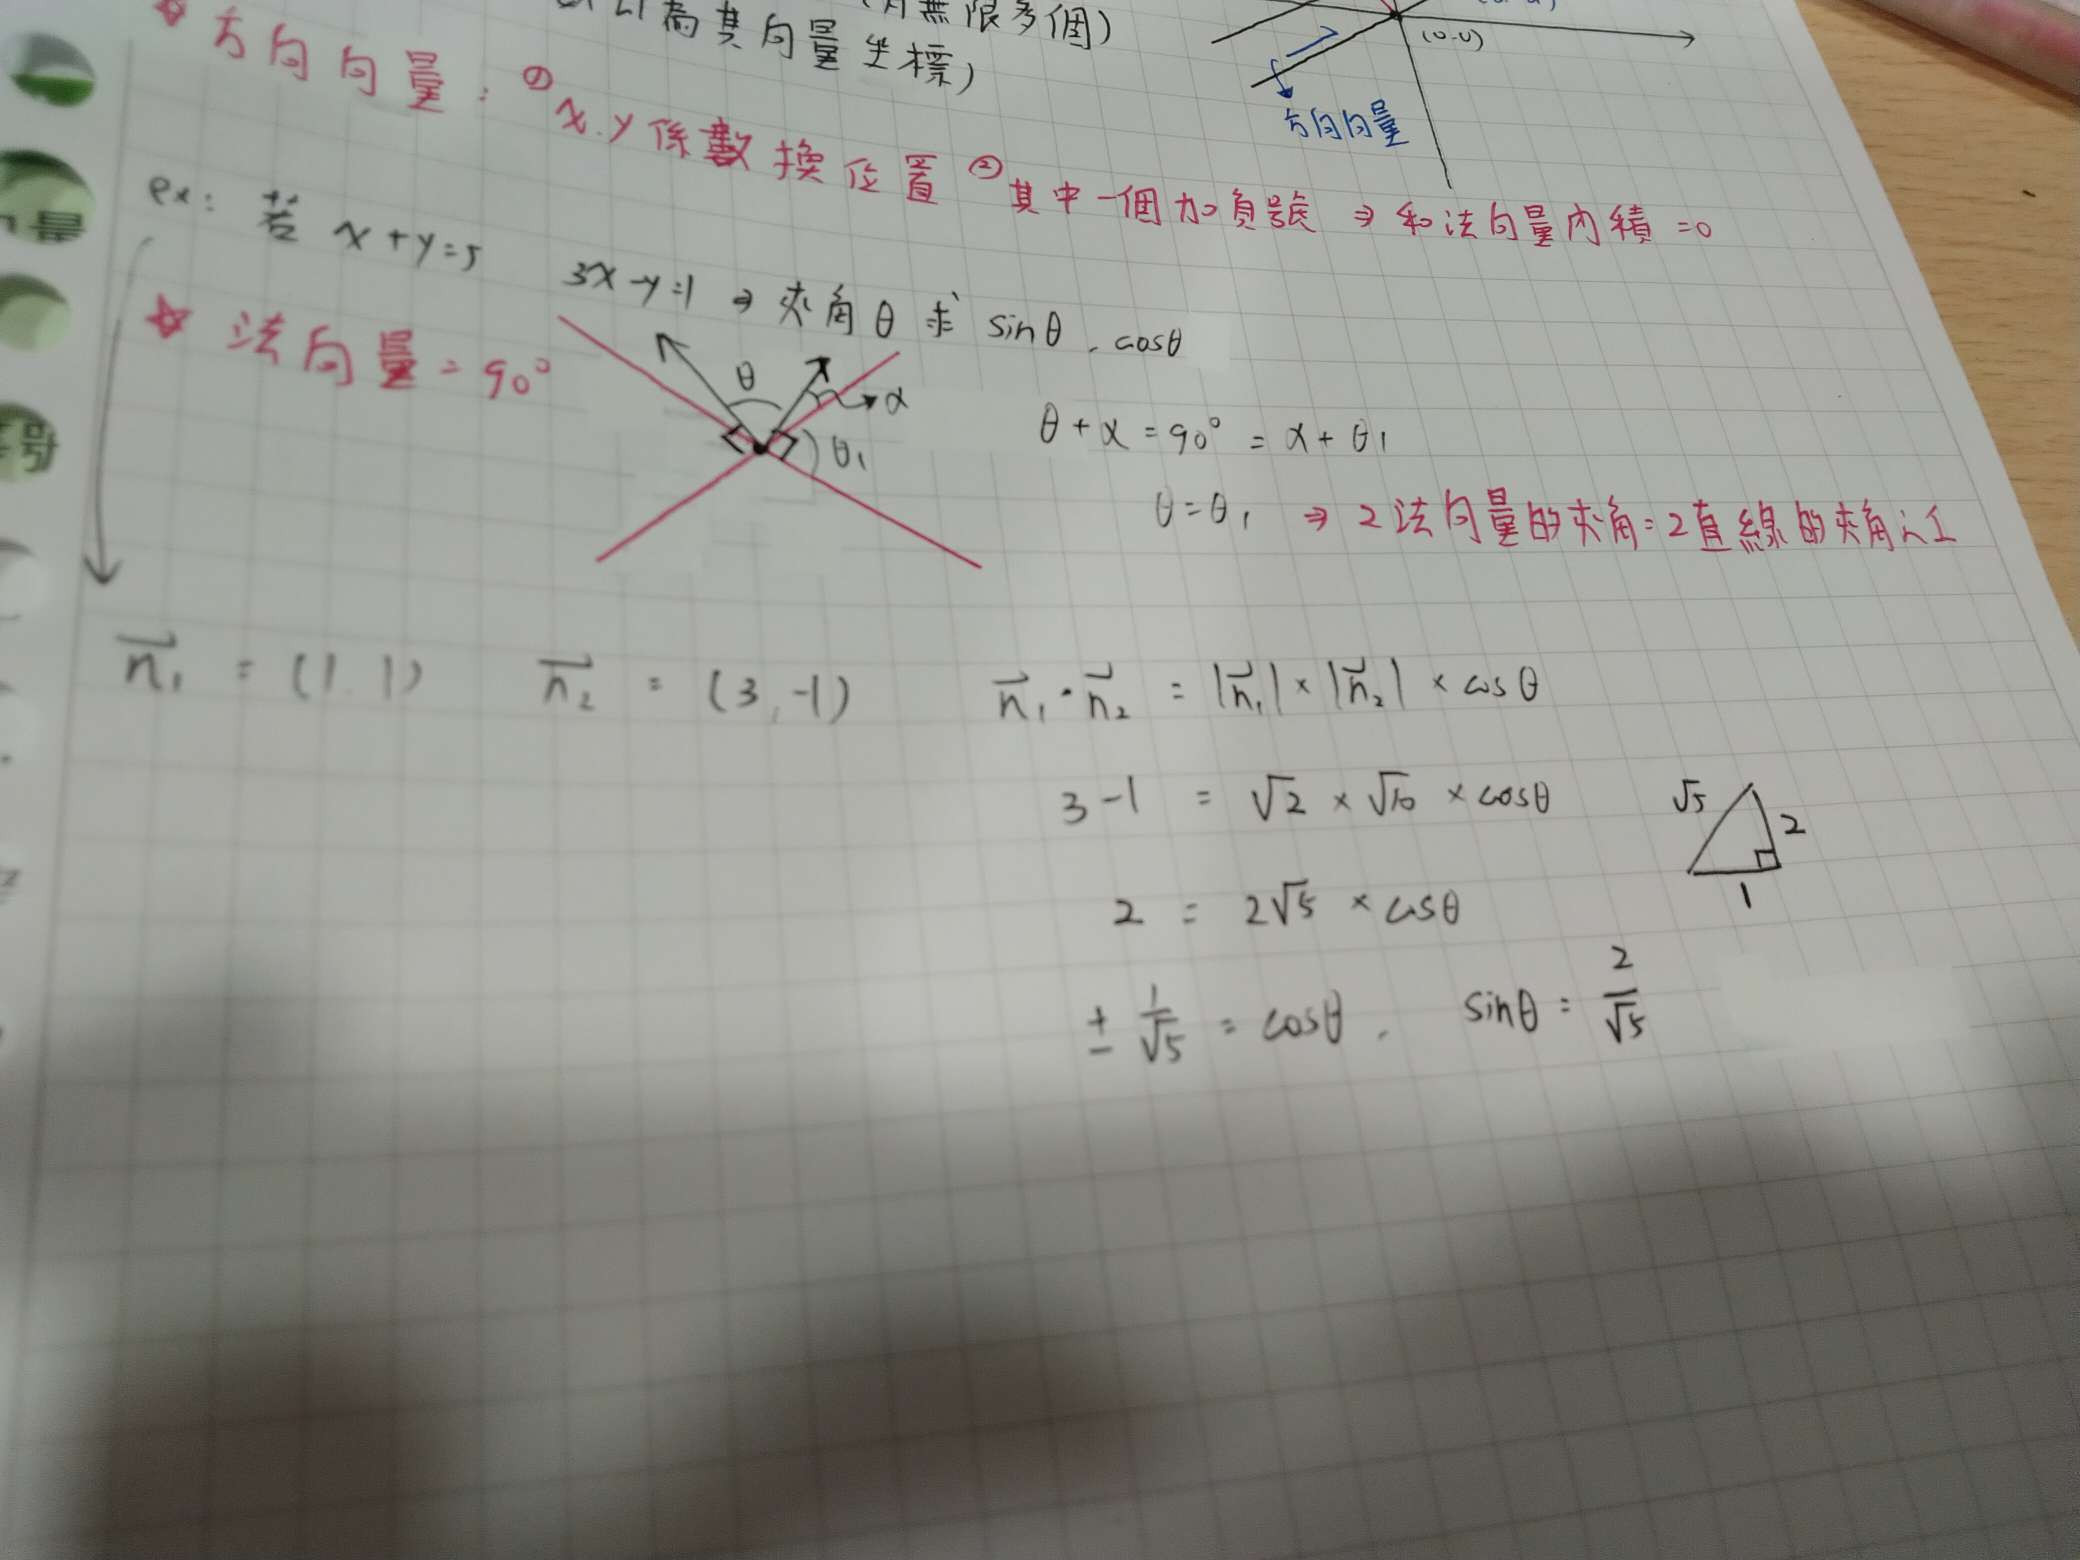 為其向量坐標)
無限多個)
(0.0)
方向向量
方向向量: ①x.y係數換位置 ②其中一個加負號 ⇒ 和法向量內積=0
ex: 若 x+y=5 3x-y=1 ⇒ 夾角θ 求 sinθ、cosθ
☆ 法向量=90°
θ
α
θ₁
θ+α=90°=α+θ₁
θ=θ₁ ⇒ 2法向量的夾角=2直線的夾角
n₁ = (1.1) n₂ = (3,-1) n₁·n₂ = |n₁|×|n₂|×cosθ
3-1 = √2×√10×cosθ
√5
2
1
2 = 2√5×cosθ
±1/√5 = cosθ, sinθ=2/√5